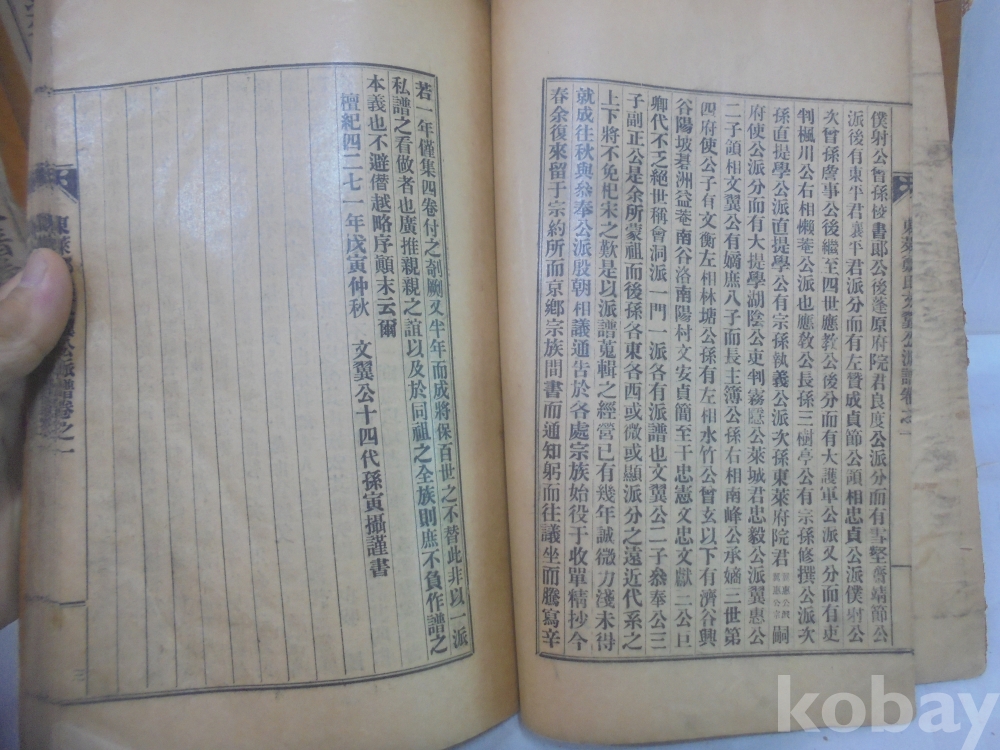 僕射公曾孫校書郎公後蓬原府院君良度公派分而有雪壑齋靖節公
派後有東平君襄平君派分而有左贊成貞節公領相忠貞公派僕射公
次曾孫詹事公後繼至四世應教公後分而有大護軍公派又分而有吏
判楓川公右相懶菴公派也應教公長孫三樹亭公有宗孫修撰公派次
孫直提學公派直提學公有宗孫執義公派次孫東萊府院君 嗣
府使公派分而有大提學湖陰公吏判霧隱公萊城君忠毅公派翼惠公
二子領相文翼公有嫡庶八子而長主簿公孫右相南峰公承嫡三世第
四府使公子有文衡左相林塘公孫有左相水竹公曾玄以下有濟谷興
谷陽坡碁洲益菴南谷洛南陽村文安貞簡至于忠憲文忠文獻二公巨
卿代不乏絶世稱會洞派一門一派各有派譜也文翼公二子叅奉公三
子副正公是余所蒙祖而後孫各東各西或微或顯派分之遠近代系之
上下將不免杞宋之歎是以派譜蒐輯之經營已有幾年誠微力淺未得
就成往秋與叅奉公派殷朝相議通告於各處宗族始役于收單精抄今
春余復來留于宗約所而京鄉宗族間書而通知躬而往議坐而騰寫辛
若一年僅集四卷付之剞劂又半年而成將保百世之不替此非以一派
私譜之看做者也廣推親親之誼以及於同祖之全族則庶不負作譜之
本義也不避僭越略序顛末云爾
檀紀四二七一年戊寅仲秋 文翼公十四代孫寅攝謹書